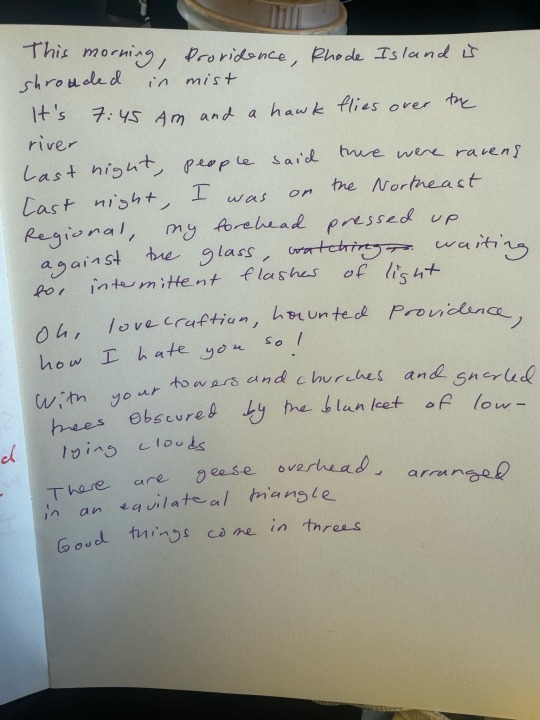 This morning, Providence, Rhode Island is
shrouded in mist
It's 7:45 AM and a hawk flies over the
river
Last night, people said there were ravens
Last night, I was on the Northeast
Regional, my forehead pressed up
against the glass, watching waiting
for intermittent flashes of light
Oh, lovecraftian, haunted Providence,
how I hate you so!
With your towers and churches and gnarled
trees obscured by the blanket of low-
lying clouds
There are geese overhead, arranged
in an equilateral triangle
Good things come in threes
d